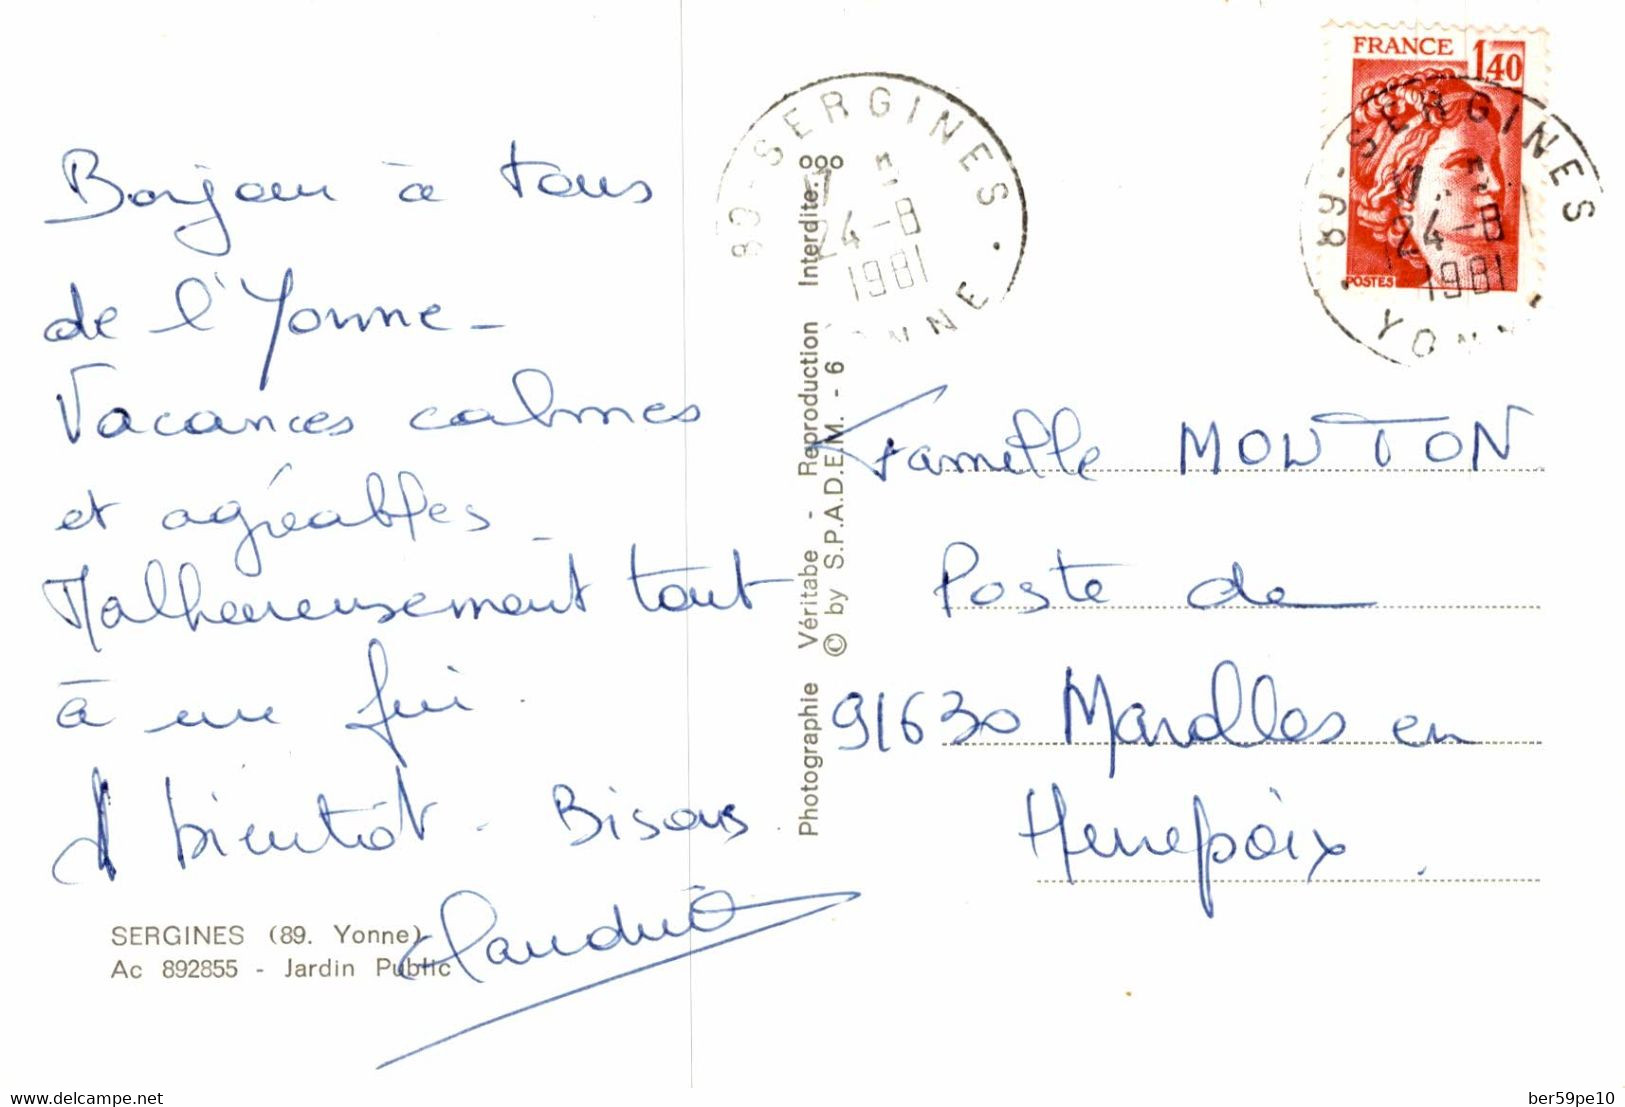 Bonjour à tous
de l'Yonne -
Vacances calmes
et agréables -
Malheureusement tout
à une fin.
A bientôt - Bisous
SERGINES (89. Yonne)
Ac 892855 - Jardin Public
Photographie Véritabe - Reproduction Interdite.
© by S.P.A.D.E.M. - 6
89 - SERGINES
24-8
1981
YONNE
FRANCE 1,40
POSTES
89 - SERGINES
24-8
1981
YONNE
Famille MOUTON
Poste de
91630 Marolles en
Hurepoix.
www.delcampe.net
ber59pe10